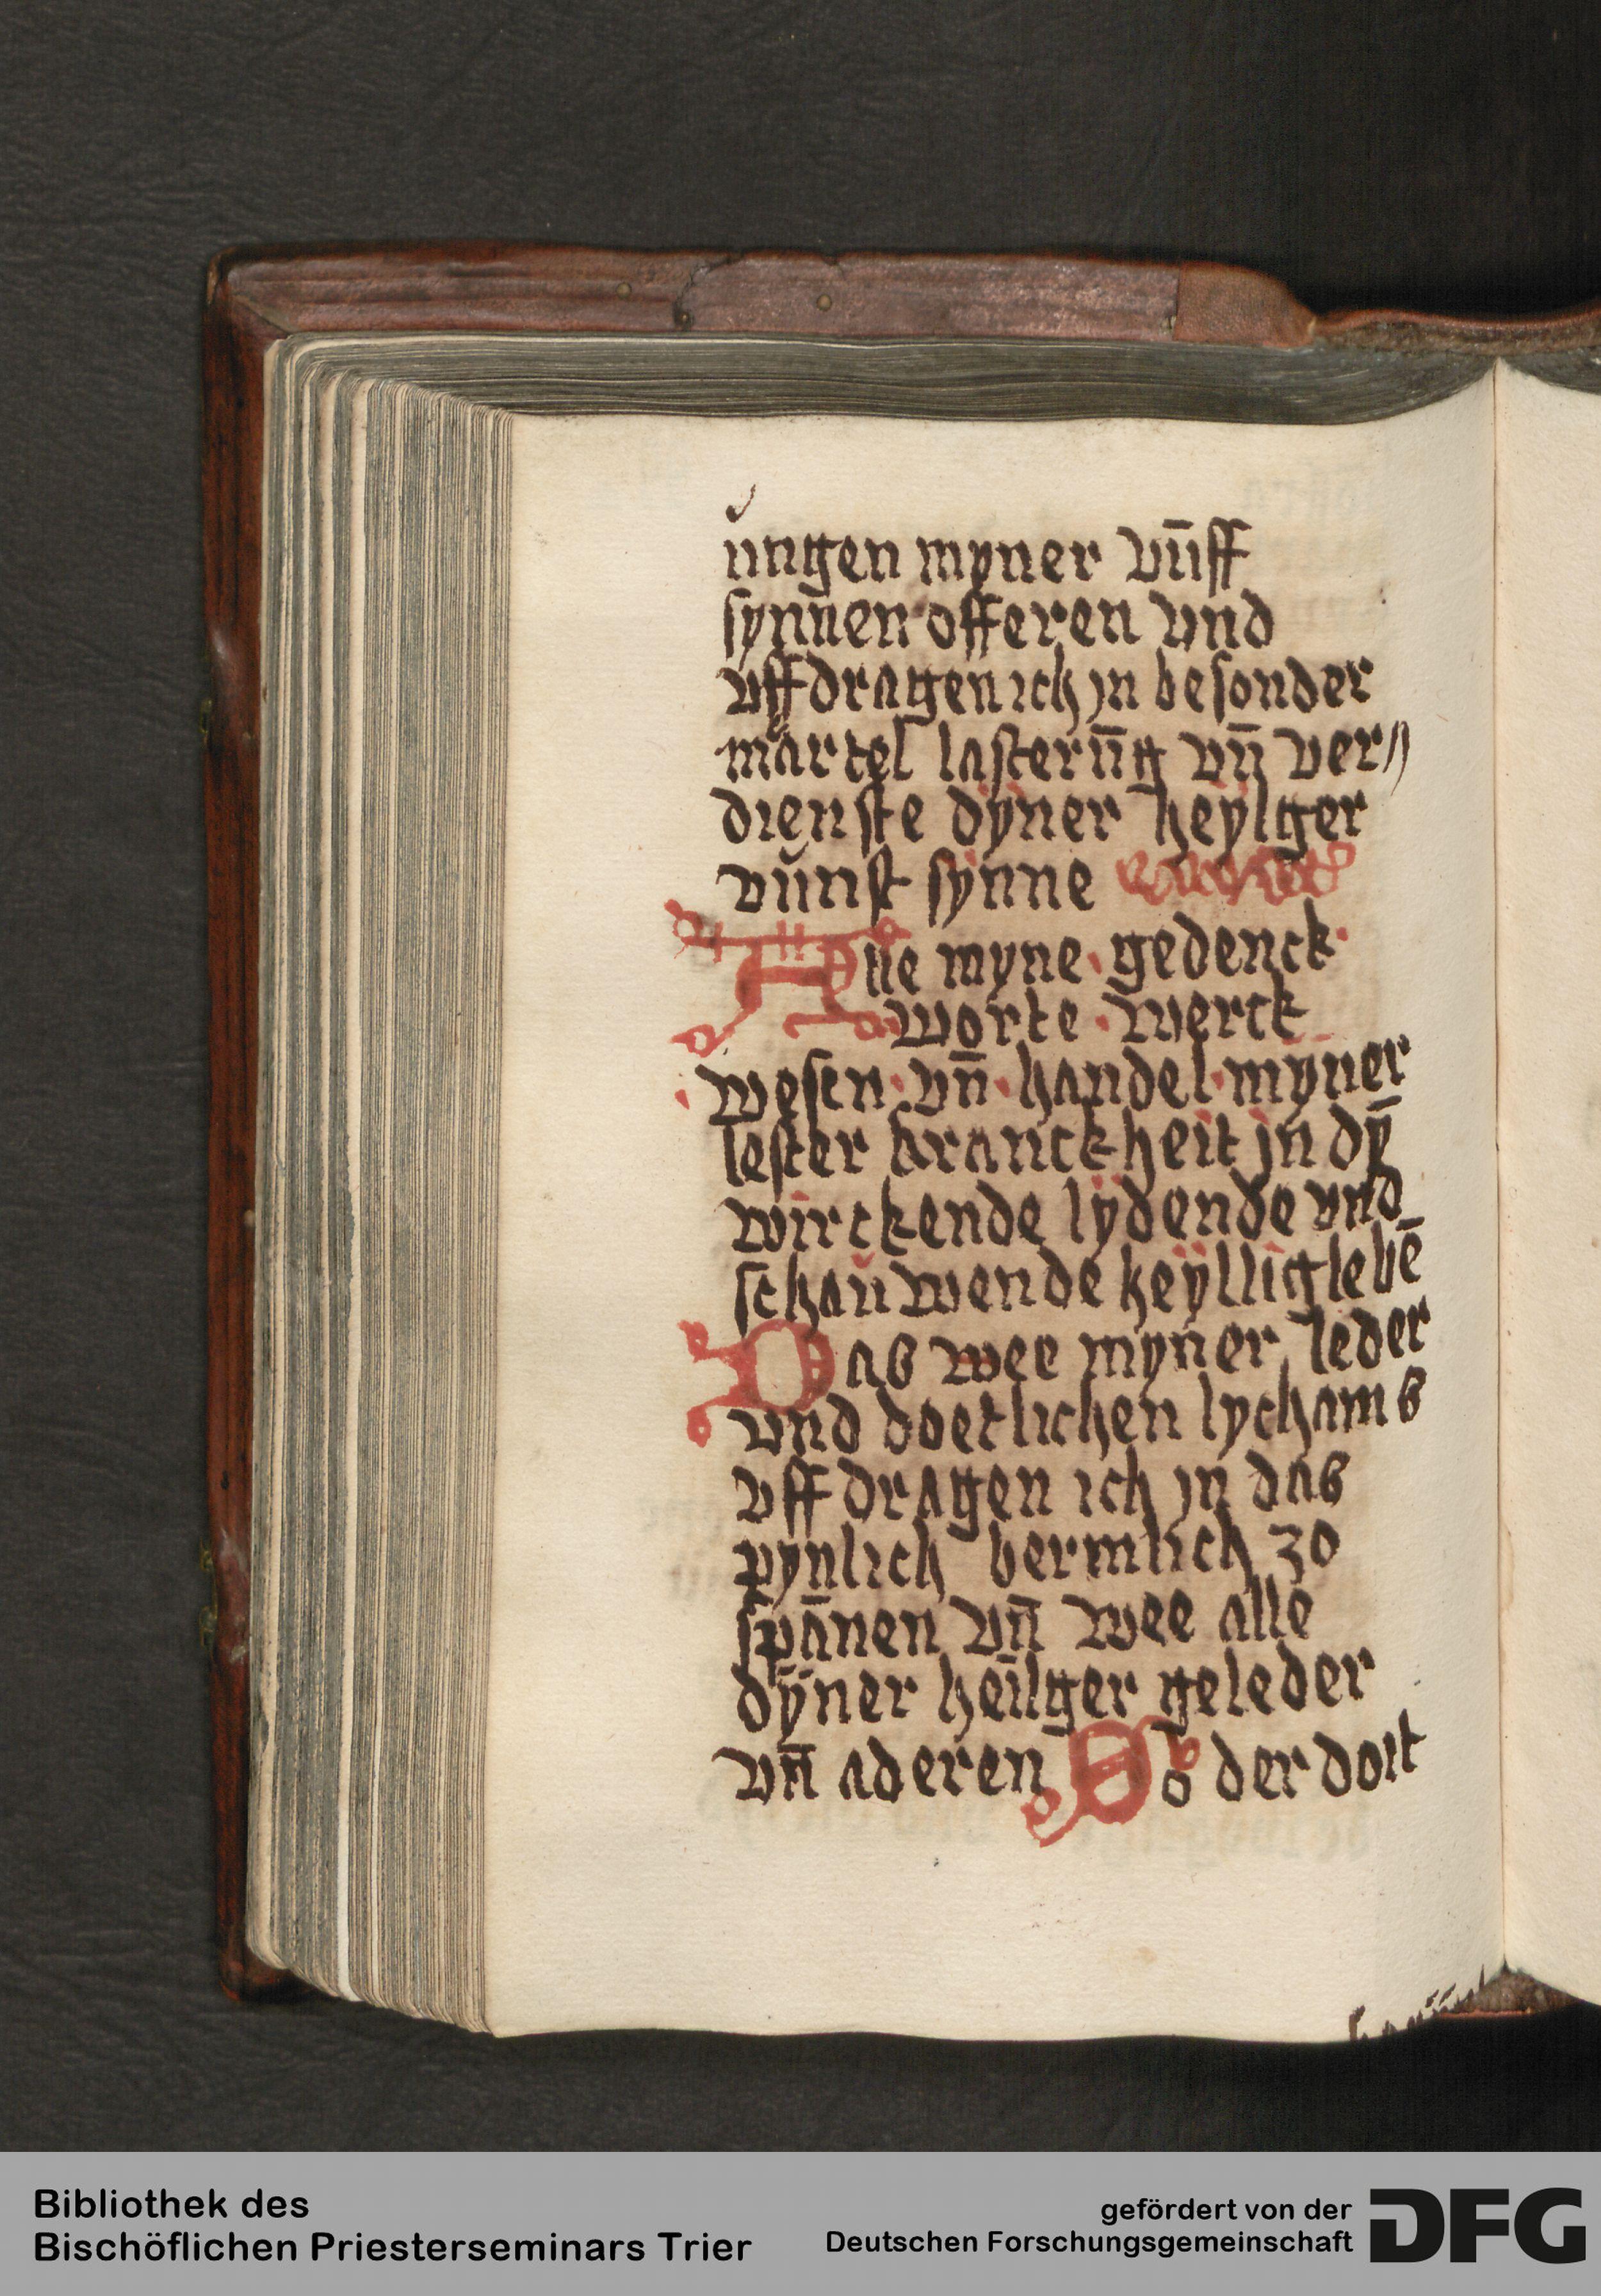 ŭngen myner vūff
synnen offeren vnd
vffdragen ich jn besonder
martel lasterūg vn̄ ver〃
dienste dyner heylger
vŭnst synne
Alle myne · gedenck ·
worte · werck
· wesen · vn̄ · handel · myner
lester kranckheit jn dȳ
wirckende lydende vnd
schaŭwende heylliglebē
Das wee myner leder
vnd doetlichen lychams
vff dragen ich jn das
pynlich bermlich zo
spānen vn̄ wee alle
dyner heilger geleder
vn̄ aderen So der doit
Bibliothek des
Bischöflichen Priesterseminars Trier
gefördert von der
Deutschen Forschungsgemeinschaft
DFG